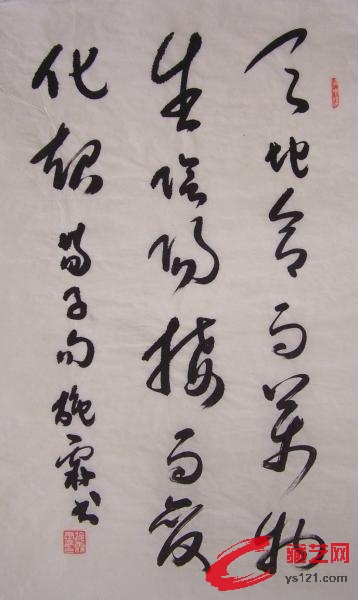 天地合而萬物
生陰陽接而變
化起 荀子句 施霖书
藏艺网
ys121.com